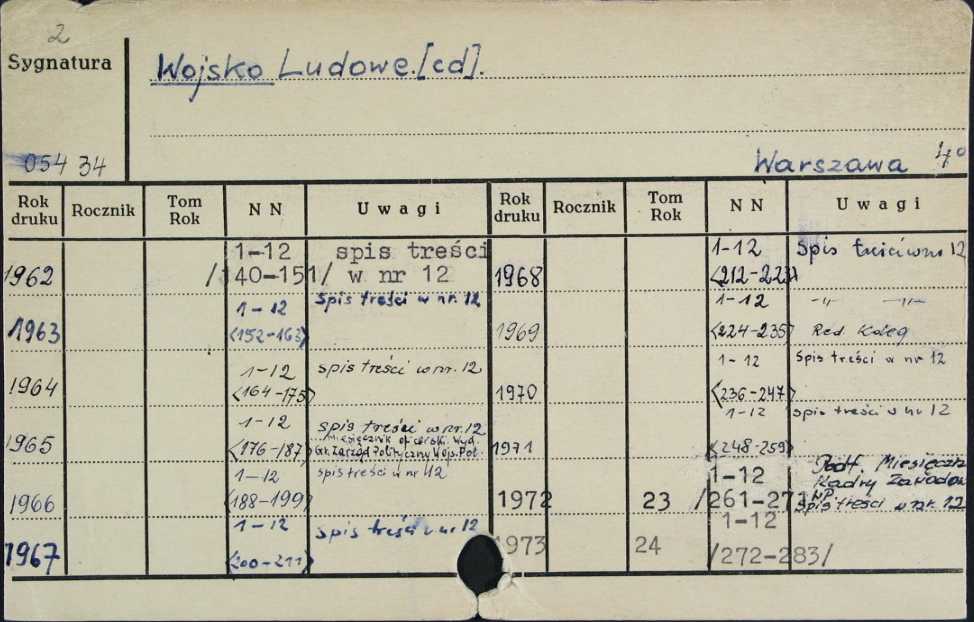 2
Sygnatura
Wojsko Ludowe.[cd].
054 34
Warszawa 4°
Rok druku Rocznik Tom Rok N N Uwagi Rok druku Rocznik Tom Rok N N Uwagi
1962 1-12 /140-151/ spis treści w nr 12
1963 1-12 <152-163> Spis treści w nr. 12
1964 1-12 <164-175> spis treści w nr. 12
1965 1-12 <176-187> spis treści w nr. 12
miesięcznik oficerski. Wyd.
Gł. Zarząd Polityczny Wojs. Pol.
1966 1-12 <188-199> spis treści w nr 12
1967 1-12 <200-211> spis treści w nr 12
1968 1-12 <212-223> Spis treści w nr 12
1969 1-12 <224-235> -"- -"-
Red Koleg
1970 1-12 <236-247> spis treści w nr 12
1971 1-12 <248-259> spis treści w nr 12
1972 23 1-12 /261-271 Podt. Miesięczn
Kadry Zawodow
WP
spis treści w nr. 12
1973 24 1-12 /272-283/